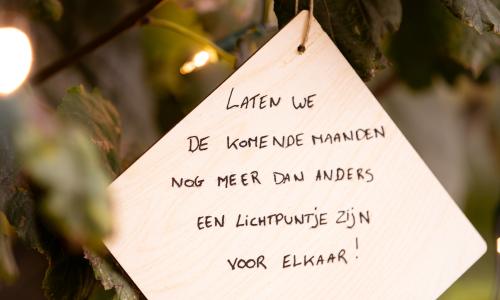 LATEN WE
DE KOMENDE MAANDEN
NOG MEER DAN ANDERS
EEN LICHTPUNTJE ZIJN
VOOR ELKAAR!